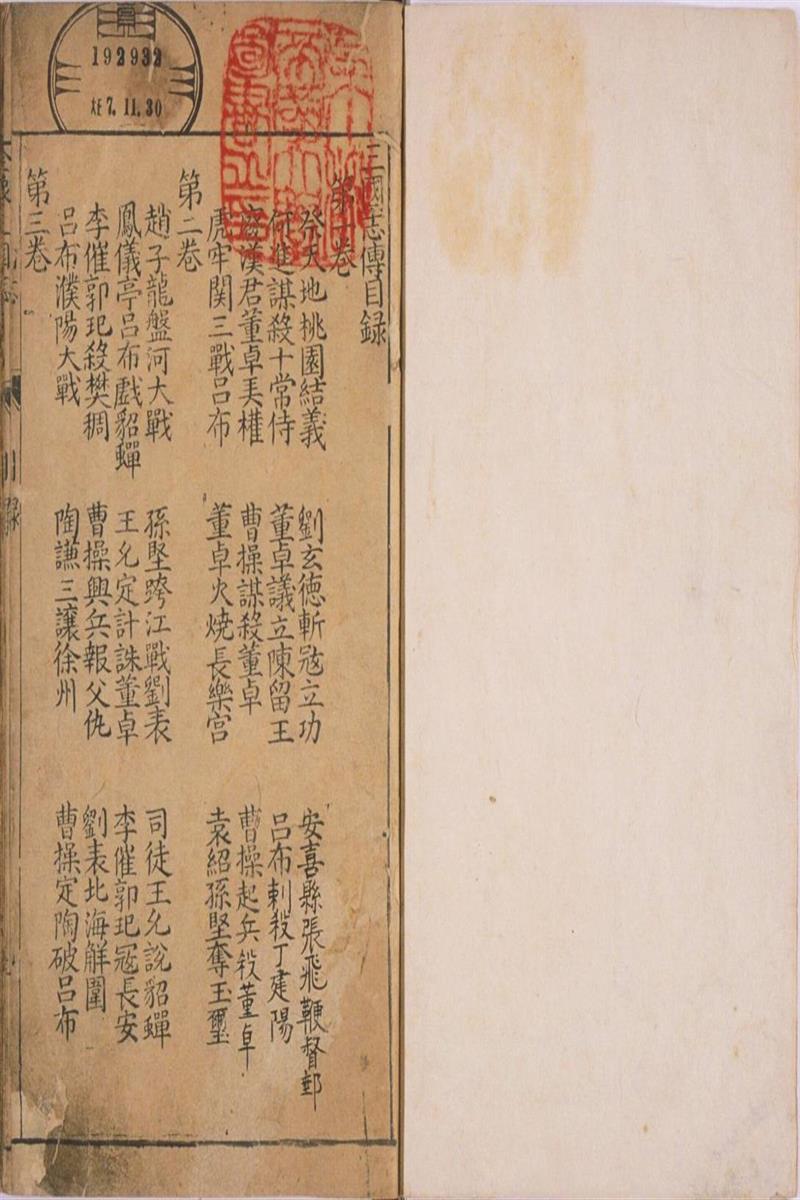 三國志傳目録
第一卷
祭天地桃園結義 劉玄德斬冦立功 安喜縣張飛鞭督郵
何進謀殺十常侍 董卓議立陳留王 吕布刺殺丁建陽
廢漢君董卓弄權 曹操謀殺董卓 曹操起兵殺董卓
虎牢関三戰吕布 董卓火燒長樂宫 袁紹孫堅奪玉璽
第二卷
趙子龍盤河大戰 孫堅跨江戰劉表 司徒王允說貂蟬
鳳儀亭吕布戲貂蟬 王允定計誅董卓 李傕郭汜冦長安
李傕郭汜殺樊稠 曹操興兵報父仇 劉表北海解圍
吕布濮陽大戰 陶謙三讓徐州 曹操定陶破吕布
第三卷
192932
大正7.11.30
目録